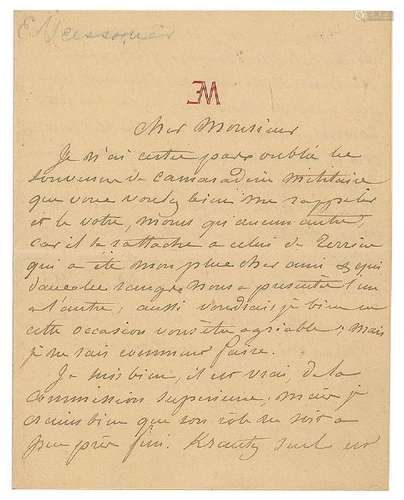 E Meissonier
EM
Cher Monsieur
Je n'ai certes pas oublié le
souvenir de camaraderie militaire
que vous voulez bien me rappeler
et le votre, moins qu'aucun autre,
car il se rattache a celui de
qui a été mon plus cher ami & qui
dans les rangs nous a présenté l'un
a l'autre, aussi voudrais-je bien en
cette occasion vous être agréable, mais
je ne sais comment faire.
Je suis bien, il est vrai, de la
Commission Supérieure, mais je
crains bien que son rôle ne soit a
peu près fini. Krantz seul est